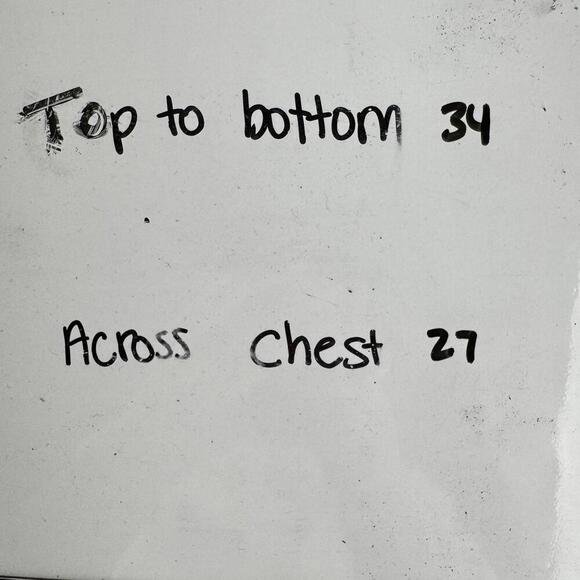 Top to bottom 34
Across Chest 27